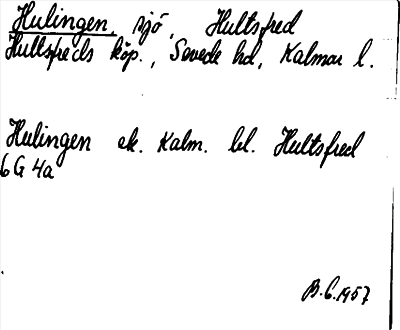 Hulingen, sjö, Hultsfred
Hultsfreds köp., Sevede hd, Kalmar l.
Hulingen ek. Kalm. bl. Hultsfred
6 G 4a
B.C. 1957